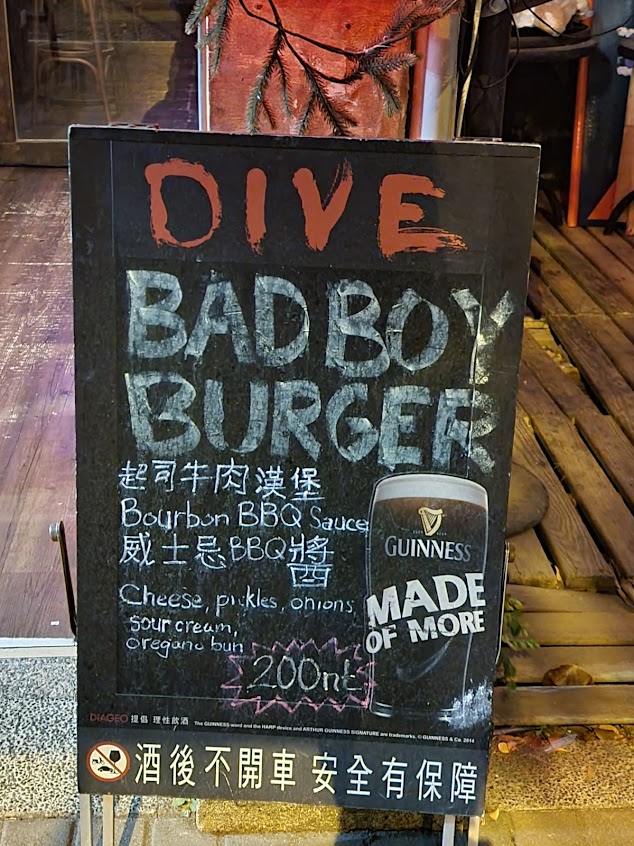 DIVE
BAD BOY
BURGER
起司牛肉漢堡
Bourbon BBQ Sauce
威士忌BBQ醬
Cheese, pickles, onions
sour cream,
oregano bun
200nt
GUINNESS
MADE
OF MORE
DIAGEO 提倡 理性飲酒 The GUINNESS word and the HARP device and ARTHUR GUINNESS SIGNATURE are trademarks. © GUINNESS & Co. 2014
酒後不開車 安全有保障